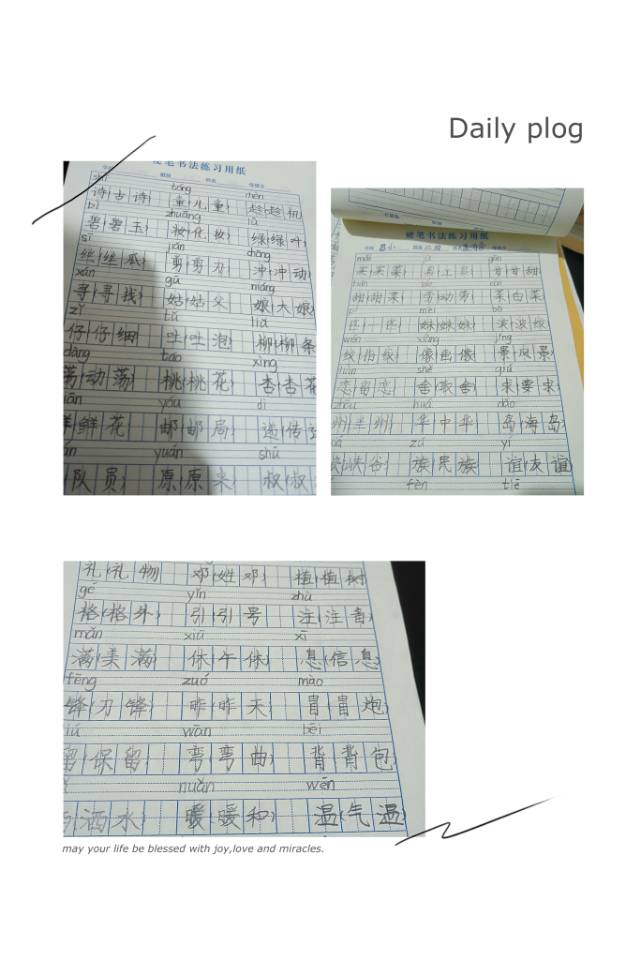 Daily plog
硬笔书法练习用纸
shī tóng chèn
诗(古诗) 童(儿童) 趁(趁机)
bì zhuāng lǜ
碧(碧玉) 妆(化妆) 绿(绿叶)
sī jiǎn chōng
丝(丝瓜) 剪(剪刀) 冲(冲动)
xún gū niáng
寻(寻找) 姑(姑父) 娘(大娘)
zǐ tǔ liǔ
仔(仔细) 吐(吐泡) 柳(柳条)
dàng táo xìng
荡(动荡) 桃(桃花) 杏(杏花
yóu dì
鲜花) 邮(邮局) 递(传
yuán shū
队员) 原(原来) 叔(叔
硬笔书法练习用纸
菜) 工 甘(甘甜
甜(甜菜) 劳(劳 菜(白菜
mèi bō
一 妹(妹妹) 波(波
xiàng jǐng
像(画像 景(风景
liàn shě qiú
恋(留恋 舍(取舍 求(要求
zhōu huá dǎo
州 州 华(中华 岛(海岛
zú yì
峡(峡谷) 族(民族 谊(友谊
fèn tiē
礼(礼物 邓(姓邓) 植(植树
gé yǐn zhù
格(格外) 引(引号 注(注意)
mǎn xiū xī
满(美满) 休(午休) 息(信息
fēng zuó mào
锋(刀锋) 昨(昨天 冒(冒炮)
liú wān bēi
留(保留) 弯(弯曲) 背(背包
nuǎn wēn
洒水) 暖(暖和) 温(气温
may your life be blessed with joy,love and miracles.